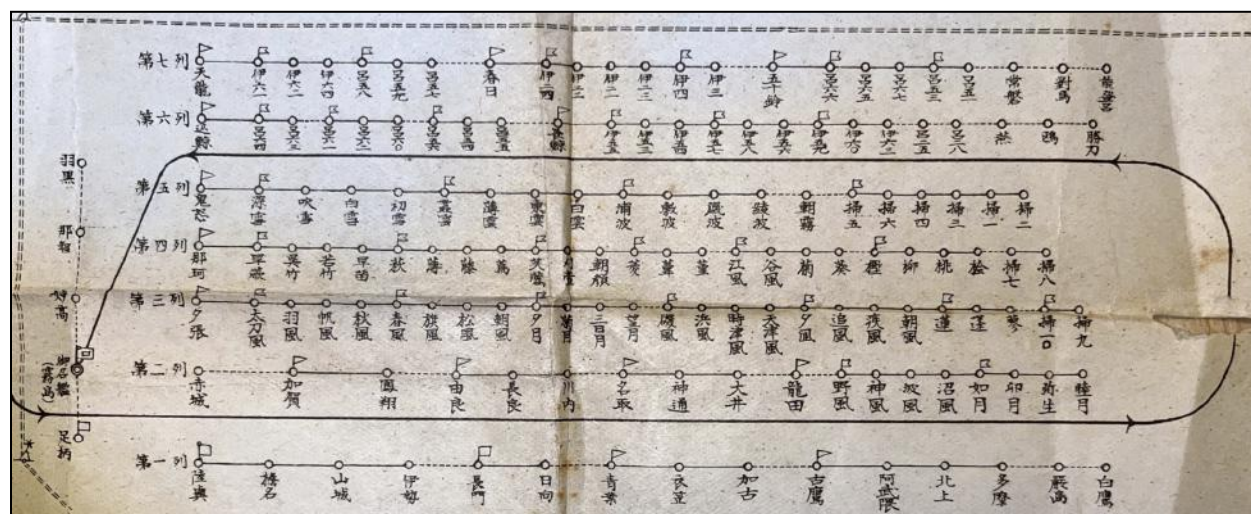 第七列 天龍 伊六一 伊六二 伊六四 呂五八 呂五九 呂五七 春日 伊二四 伊二二 伊二三 伊四 伊三 五十鈴 呂六六 呂六五 呂六七 呂五三 呂五一 常磐 對馬
第六列 迅鯨 呂六四 呂六三 呂六一 呂六二 呂六〇 長鯨 伊五五 伊五三 伊五四 伊五七 伊五八 伊五六 伊五九 伊六〇 伊六三 呂二八 燕 鴎 勝力
羽黒
第五列 鬼怒 深雪 吹雪 白雪 初雪 叢雲 薄雲 東雲 白雲 浦波 敷波 磯波 綾波 朝霧 掃五 掃六 掃四 掃三 掃一 掃二
那智
第四列 那珂 早蕨 呉竹 若竹 早苗 萩 薄 藤 蔦 芙蓉 刈萱 朝顔 菱 葦 菫 江風 谷風 菊 葵 樫 柳 桃 桧 掃七 掃八
妙高
第三列 夕張 太刀風 羽風 帆風 秋風 春風 旗風 松風 朝風 夕月 菊月 三日月 望月 磯風 浜風 時津風 天津風 夕風 追風 疾風 朝凪 蓮 蓬 蓼 掃一〇 掃九
御召艦
(霧島)
第二列 赤城 加賀 鳳翔 由良 長良 川内 名取 神通 大井 龍田 野風 神風 波風 沼風 如月 卯月 弥生 睦月
足柄
第一列 陸奥 榛名 山城 伊勢 長門 日向 青葉 衣笠 加古 古鷹 阿武隈 北上 多摩 厳島 白鷹